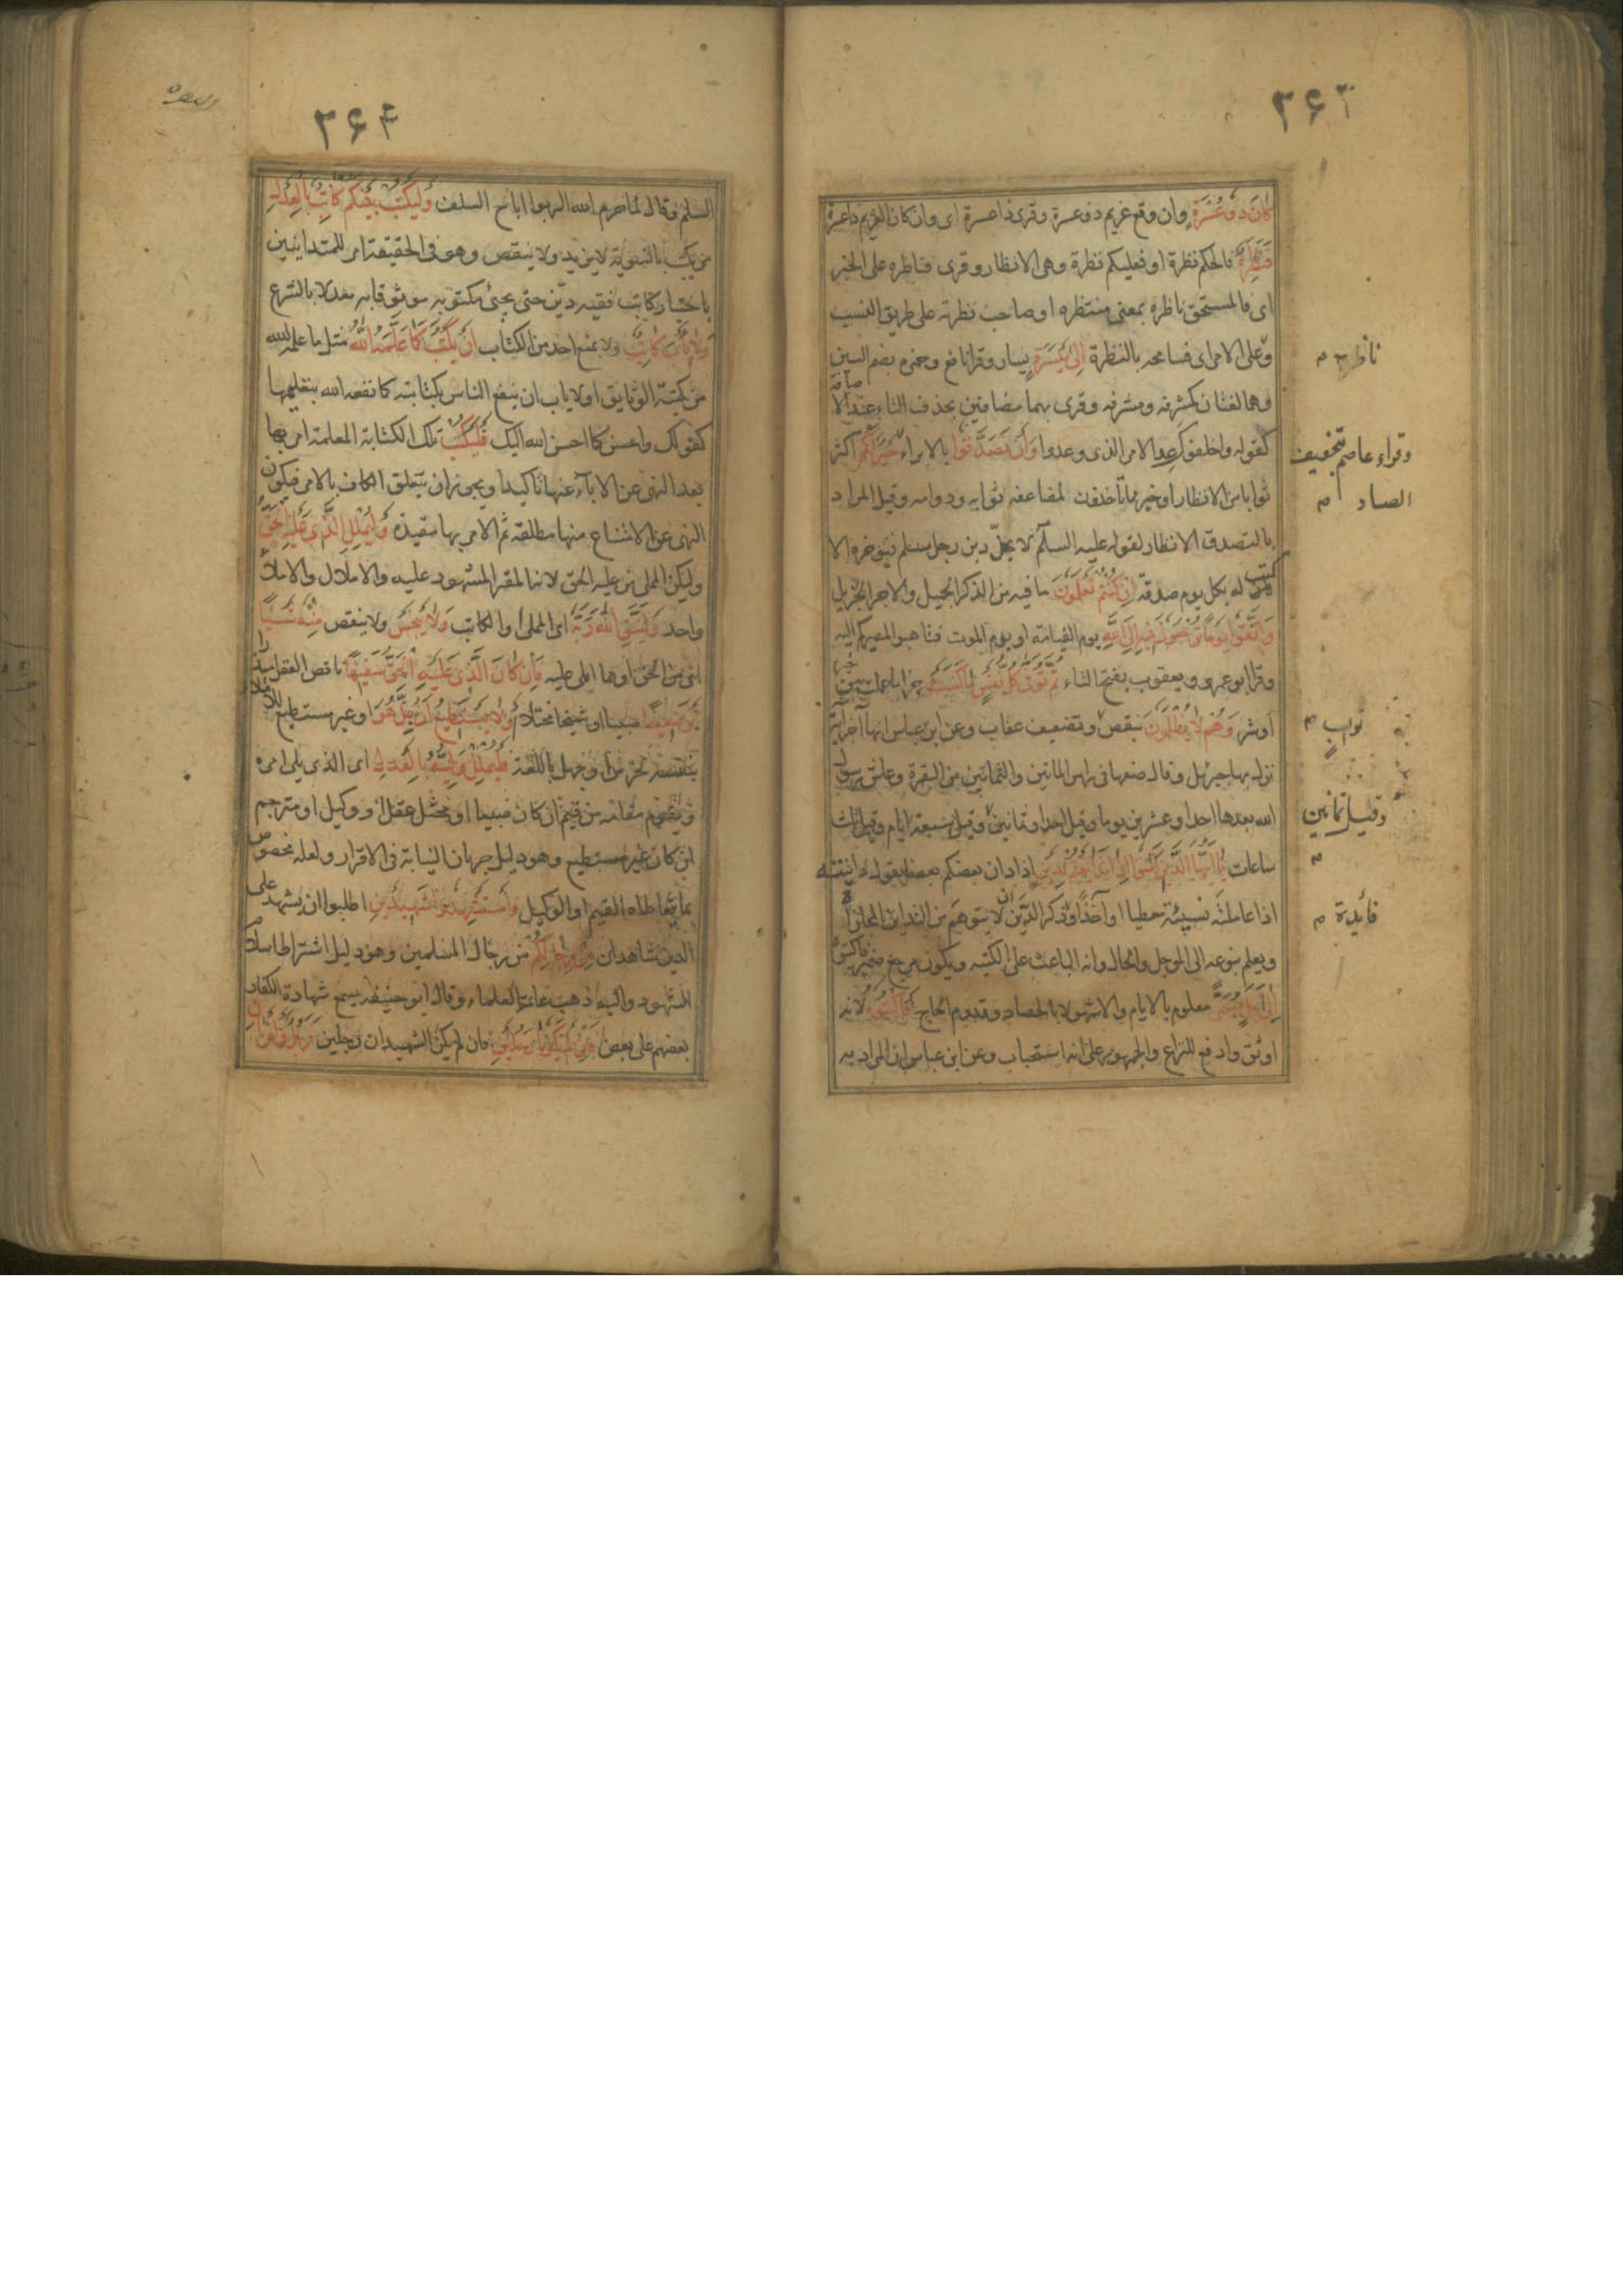 ٢۶٣
كَانَ ذُو عُسْرَةٍ وان وقع غريم ذو عسرة وقرئ ذا عسرة اى وان كان الغريم ذا عسرة
فَنَظِرَةٌ فالحكم نظرة او فعليكم نظرة وهى الانظار وقرى فناظره على الخبر
اى فالمستحق ناظره بمعنى منتظره او صاحب نظرته على طريق النسب
وعلى الامر اى فسامحه بالنظرة اِلىٰ مَيْسَرَةٍ يسار وقرا نافع وحمزه بضم السين
وهما لغتان كمشرقه ومشرقه وقرى بهما مضافين بحذف التاء عند الاضافة
كقوله واخلفوك عد الامر الذى وعدوا وَاَنْ تَصَدَّقُوا بالابراء خَيْرٌ لَكُمْ اكثر
ثوابا من الانظار او خير مما تأخذون لمضاعفه ثوابه ودوامه وقيل المراد
بالتصدق الانظار لقوله عليه السلم لا يحلّ دين رجل مسلم فيؤخره الا
كتب له بكل يوم صدقة اِنْ كُنْتُمْ تَعْلَمُونَ ما فيه من الذكر الجميل والاجر الجزيل
وَاتَّقُوا يَوْمًا تُرْجَعُونَ فِيهِ اِلَى اللّٰهِ يوم القيامة او يوم الموت فتاهبوا لمصيركم اليه
وقرا ابو عمرو ويعقوب بفتح التاء ثُمَّ تُوَفّٰى كُلُّ نَفْسٍ مَا كَسَبَتْ جزا ما عملت من خير
او شر وَهُمْ لَا يُظْلَمُونَ بنقص وتضعيف عقاب وعن ابن عباس انها آخر آية
نزل بها جبرئيل وقال ضعها فى راس الماتين والثمانين من البقرة وعاش رسول
الله بعدها احدا وعشرين يوما وقيل احدا وثمانين وقيل سبعة ايام وقيل ثلث
ساعات يَا اَيُّهَا الَّذِينَ آمَنُوا اِذَا تَدَايَنْتُمْ بِدَيْنٍ اذا دان بعضكم بعضا يقول داينته
اذا عاملته نسيئة معطيا او آخذا وذكر الدين ان لا يتوهم من التداين المجازاة
ويعلم تنوعه الى الموجل والحال وانه الباعث على الكتبه ويكون مرجع ضمير فاكتبوه
اِلىٰ اَجَلٍ مُسَمًّى معلوم بالايام والاشهر لا بالحصاد وقدوم الحاج فَاكْتُبُوهُ لانه
اوثق وادفع للنزاع والجمهور على انه استحباب وعن ابن عباس ان المراد به
وقراء عاصم بتخفيف
الصاد م
ثواب م
وقيل ثمانين
م
فائدة م
٢۶۴
السلم وقال لما حرم الله الربوا اباح السلف وَلْيَكْتُبْ بَيْنَكُمْ كَاتِبٌ بِالْعَدْلِ
من يكتب بالتسوية لا يزيد ولا ينقص وهو فى الحقيقة امر للمتداينين
باختيار كاتب فقيه ديّن حتى يجئ مكتوبه موثوقا به معدلا بالشرع
وَلَا يَأْبَ كَاتِبٌ ولا يمتنع احد من الكتاب اَنْ يَكْتُبَ كَمَا عَلَّمَهُ اللّٰهُ مثل ما علمه الله
من كتبة الوثايق او لا ياب ان ينفع الناس بكتابته كما نفعه الله بتعليمها
كقولك واحسن كما احسن الله اليك فَلْيَكْتُبْ تلك الكتابة المعلمة امر بها
بعد النهى عن الاباء عنها تاكيدا ويجوز ان يتعلق الكاف بالامر فيكون
النهى عن الامتناع منها مطلقه ثم الامر بها مقيدة وَلْيُمْلِلِ الَّذِى عَلَيْهِ الْحَقُّ
وليكن المملى من عليه الحق لانه المقر المشهود عليه والاملال والاملاء
واحد وَلْيَتَّقِ اللّٰهَ رَبَّهُ اى المملى او الكاتب وَلَا يَبْخَسْ ولا ينقص مِنْهُ شَيْئًا
اى من الحق او مما املى عليه فَاِنْ كَانَ الَّذِى عَلَيْهِ الْحَقُّ سَفِيهًا ناقص العقل مبذرا
اَوْ ضَعِيفًا صبيا او شيخا مختلا اَوْ لَا يَسْتَطِيعُ اَنْ يُمِلَّ هُوَ او غير مستطيع للاملاء
بنفسه لخرس او جهل باللغة فَلْيُمْلِلْ وَلِيُّهُ بِالْعَدْلِ اى الذى يلى امره
ويقوم مقامه من قيم ان كان صبيا او مختل عقل او وكيل او مترجم
ان كان غير مستطيع وهو دليل جريان النيابة فى الاقرار ولعله مخصوص
بما يتعاطاه القيم او الوكيل وَاسْتَشْهِدُوا شَهِيدَيْنِ اطلبوا ان يشهد على
الدين شاهدان مِنْ رِجَالِكُمْ من رجال المسلمين وهو دليل اشتراط اسلام
الشهود واليه ذهب عامة العلماء وقال ابو حنيفه يسمع شهادة الكفار
بعضهم على بعض فَاِنْ لَمْ يَكُونَا رَجُلَيْنِ فان لم يكن الشهيدان رجلين فَرَجُلٌ وَامْرَاَتَانِ